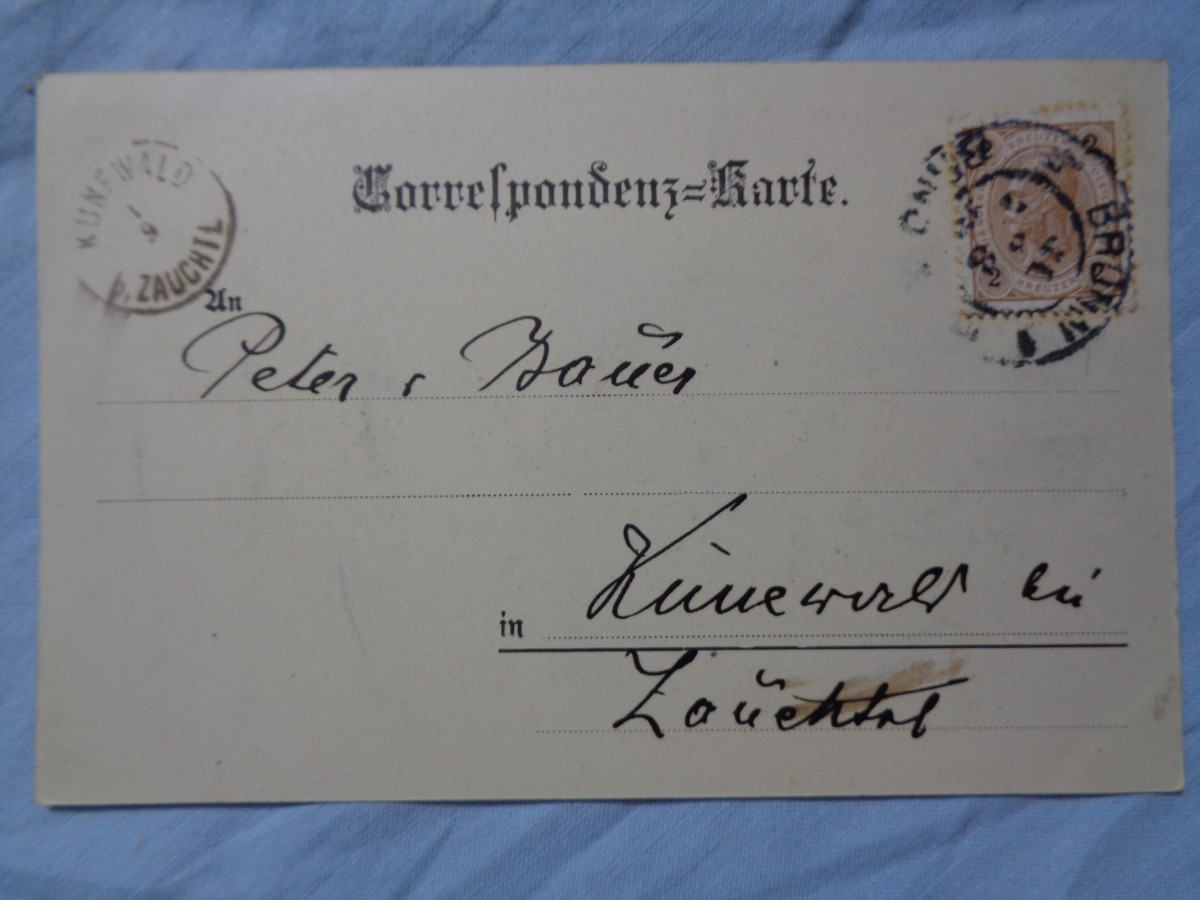 Correspondenz=Karte.
KUNEWALD
b. ZAUCHTL
KREUZER
2
BRÜNN
KREUZER
2
An
Peter Bauer
in Kunewald bei
Zauchtel